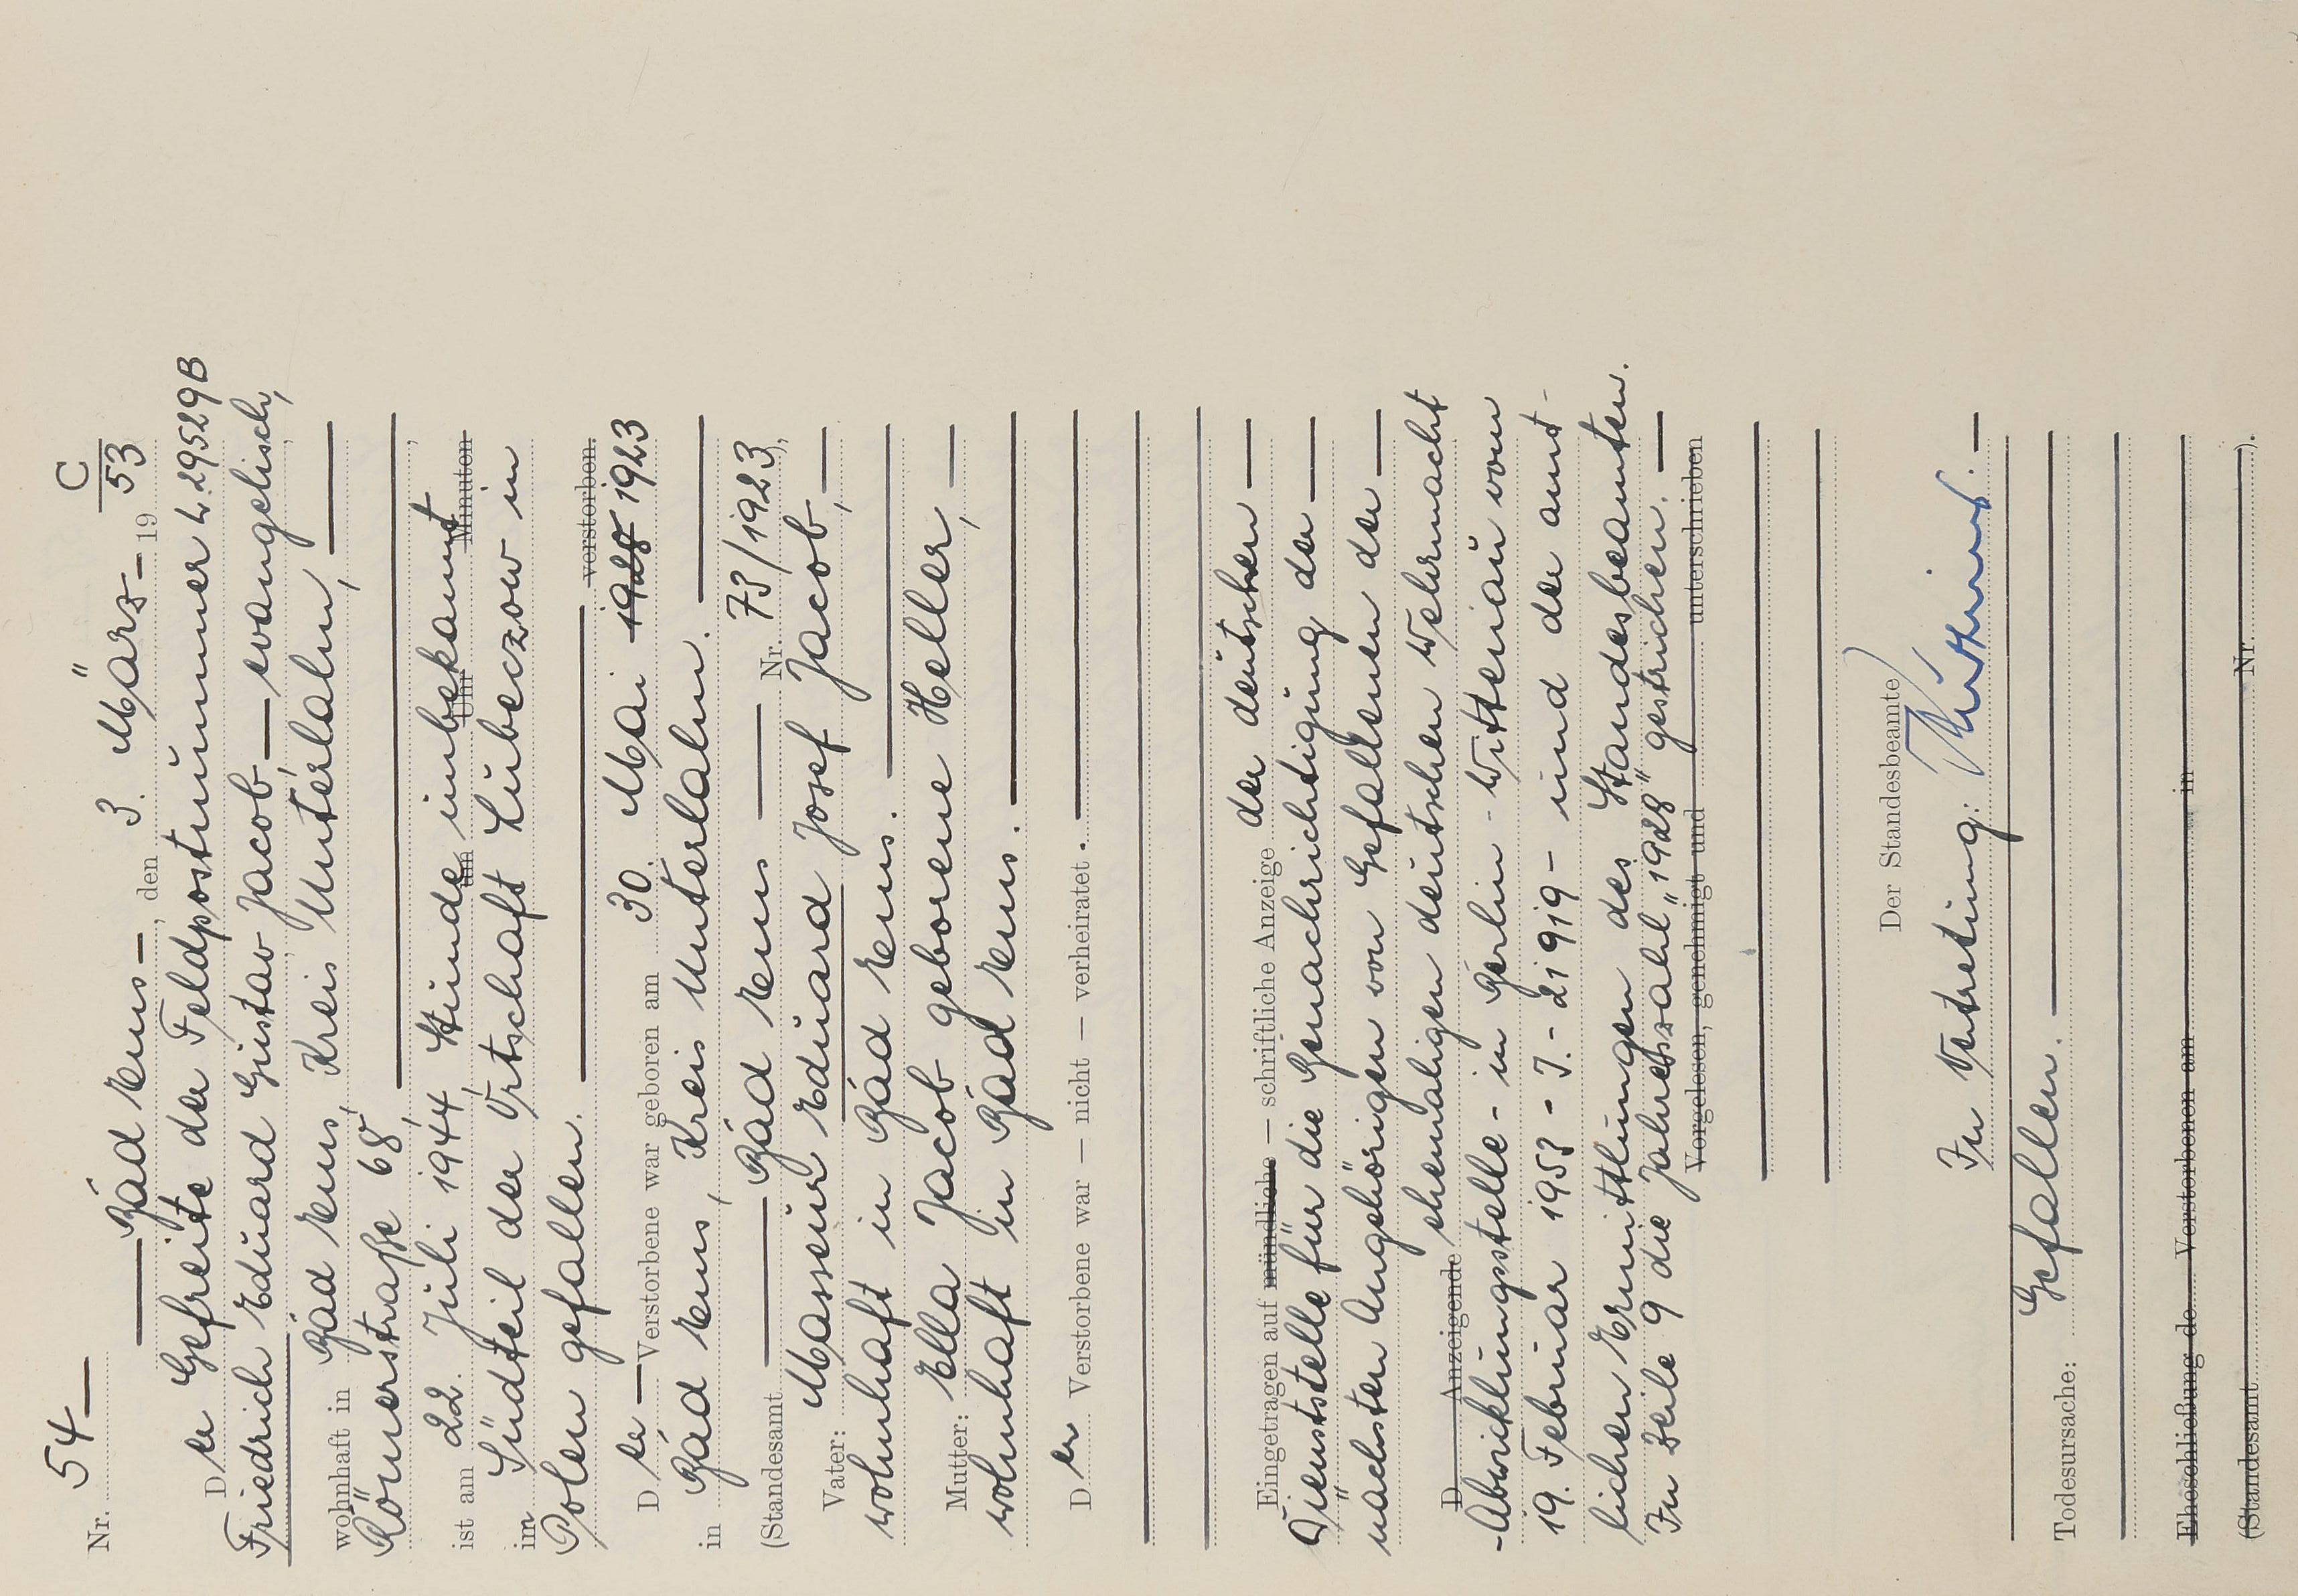 C
Nr. 54
Bad Ems, den 3. März 1953
Der Gefreite der Feldpostnummer L 29529B
Friedrich Eduard Gustav Jacob — evangelisch,
wohnhaft in Bad Ems, Kreis Unterlahn,
Römerstraße 68,
ist am 22. Juli 1944, Stunde unbekannt um Uhr Minuten
im Südteil der Ortschaft Lubeczow in
Polen gefallen. verstorben.
Der Verstorbene war geboren am 30. Mai 1928 1923
in Bad Ems, Kreis Unterlahn.
(Standesamt Bad Ems Nr. 73/1923),
Vater: Masseur Eduard Josef Jacob,
wohnhaft in Bad Ems.
Mutter: Ella Jacob geborene Heller,
wohnhaft in Bad Ems.
Der Verstorbene war — nicht — verheiratet.
Eingetragen auf mündliche — schriftliche Anzeige der deutschen
Dienststelle für die Benachrichtigung der
nächsten Angehörigen von Gefallenen der
D Anzeigende ehemaligen deutschen Wehrmacht
-Abwicklungsstelle- in Berlin-Wittenau vom
19. Februar 1953 - J.-21919- und der amt-
lichen Ermittlungen des Standesbeamten.
In Zeile 9 die Jahreszahl „1928" gestrichen.
Vorgelesen, genehmigt und unterschrieben
Der Standesbeamte
In Vertretung:
Todesursache: Gefallen.
Eheschließung de Verstorbenen am in
(Standesamt Nr. ).